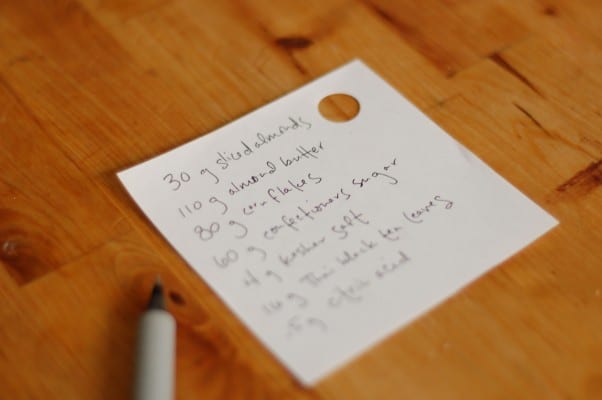 30 g sliced almonds
110 g almond butter
80 g cornflakes
60 g confectioners sugar
4 g kosher salt
16 g Thai black tea leaves
.5 g citric acid